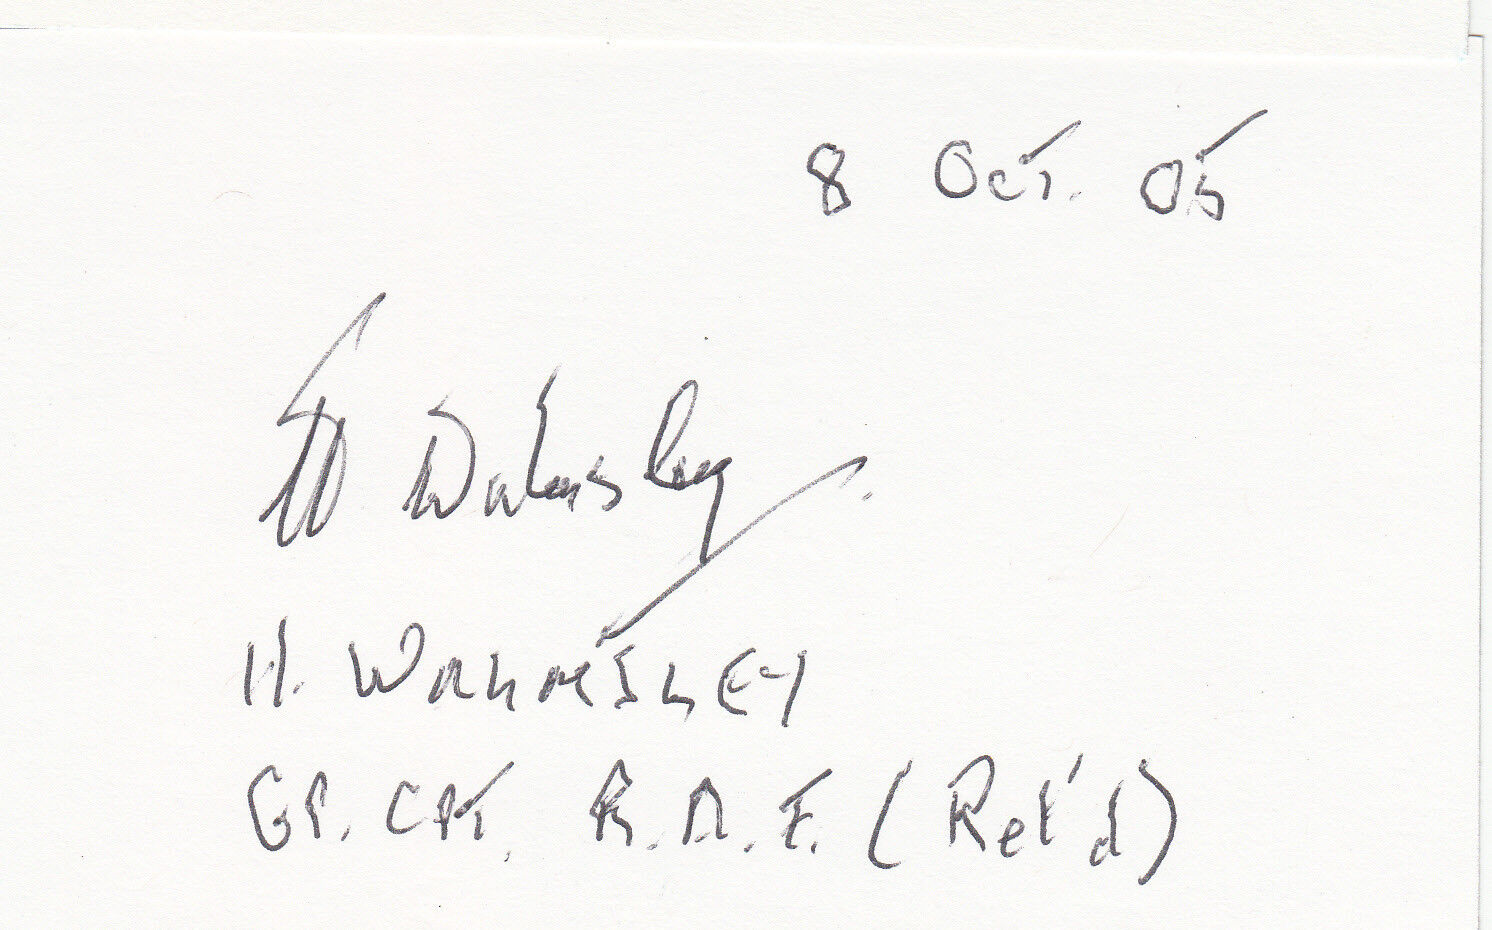 8 Oct. 05
H Walmsley.
H. WALMSLEY
GP. CPT. R.A.F. (Ret'd)